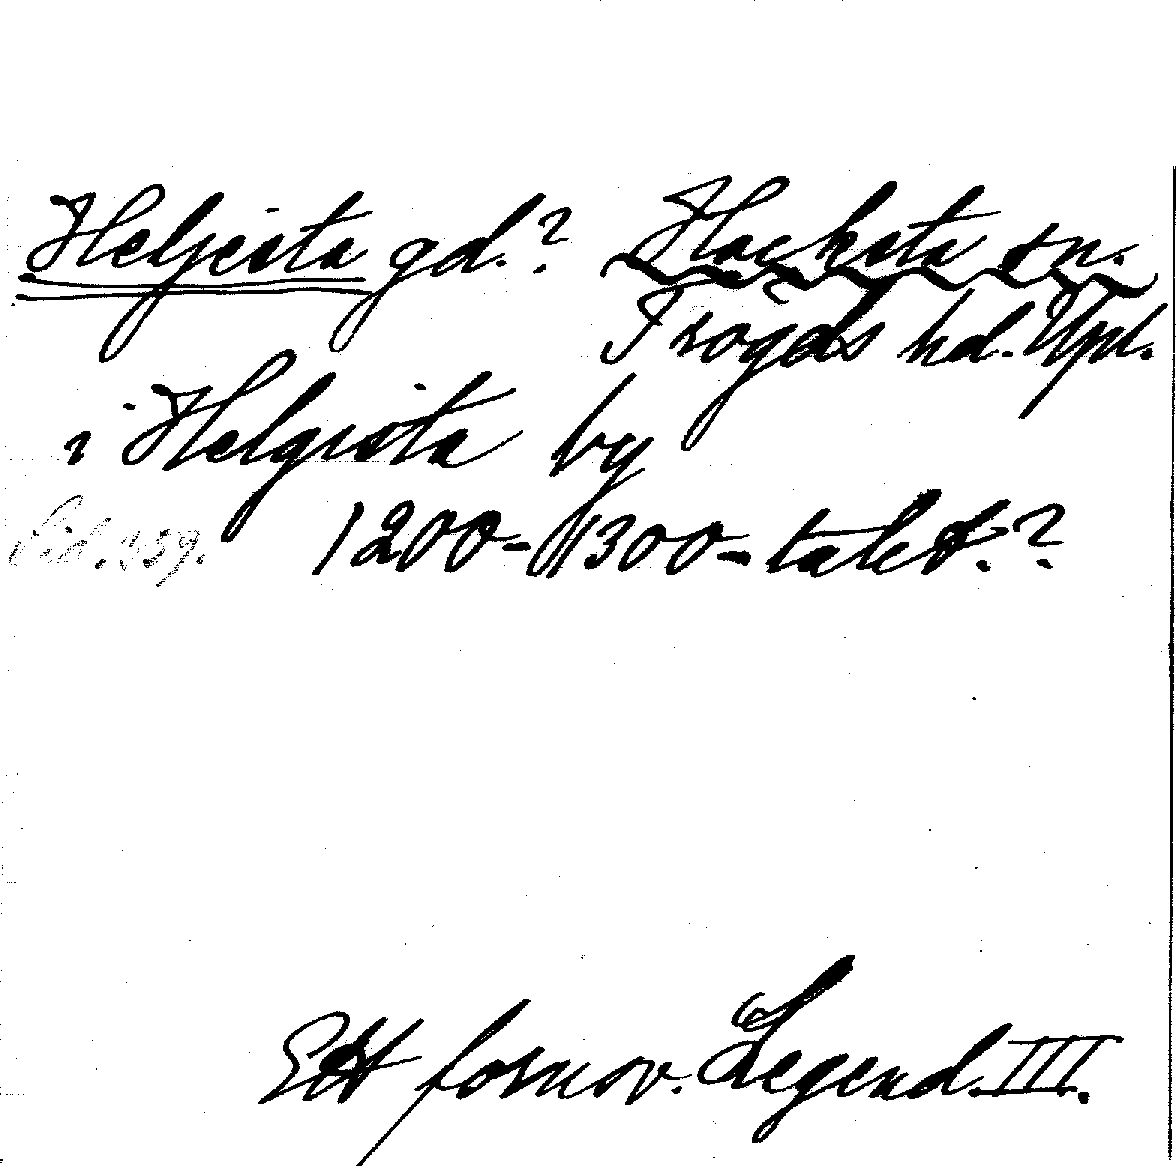 Heljesta gd.? Hacksta sn.
Trögds hd. Upl.
i Helgista by
Sid. 159. 1200-1300-talet.?
Ett fornsv. Legend. III.